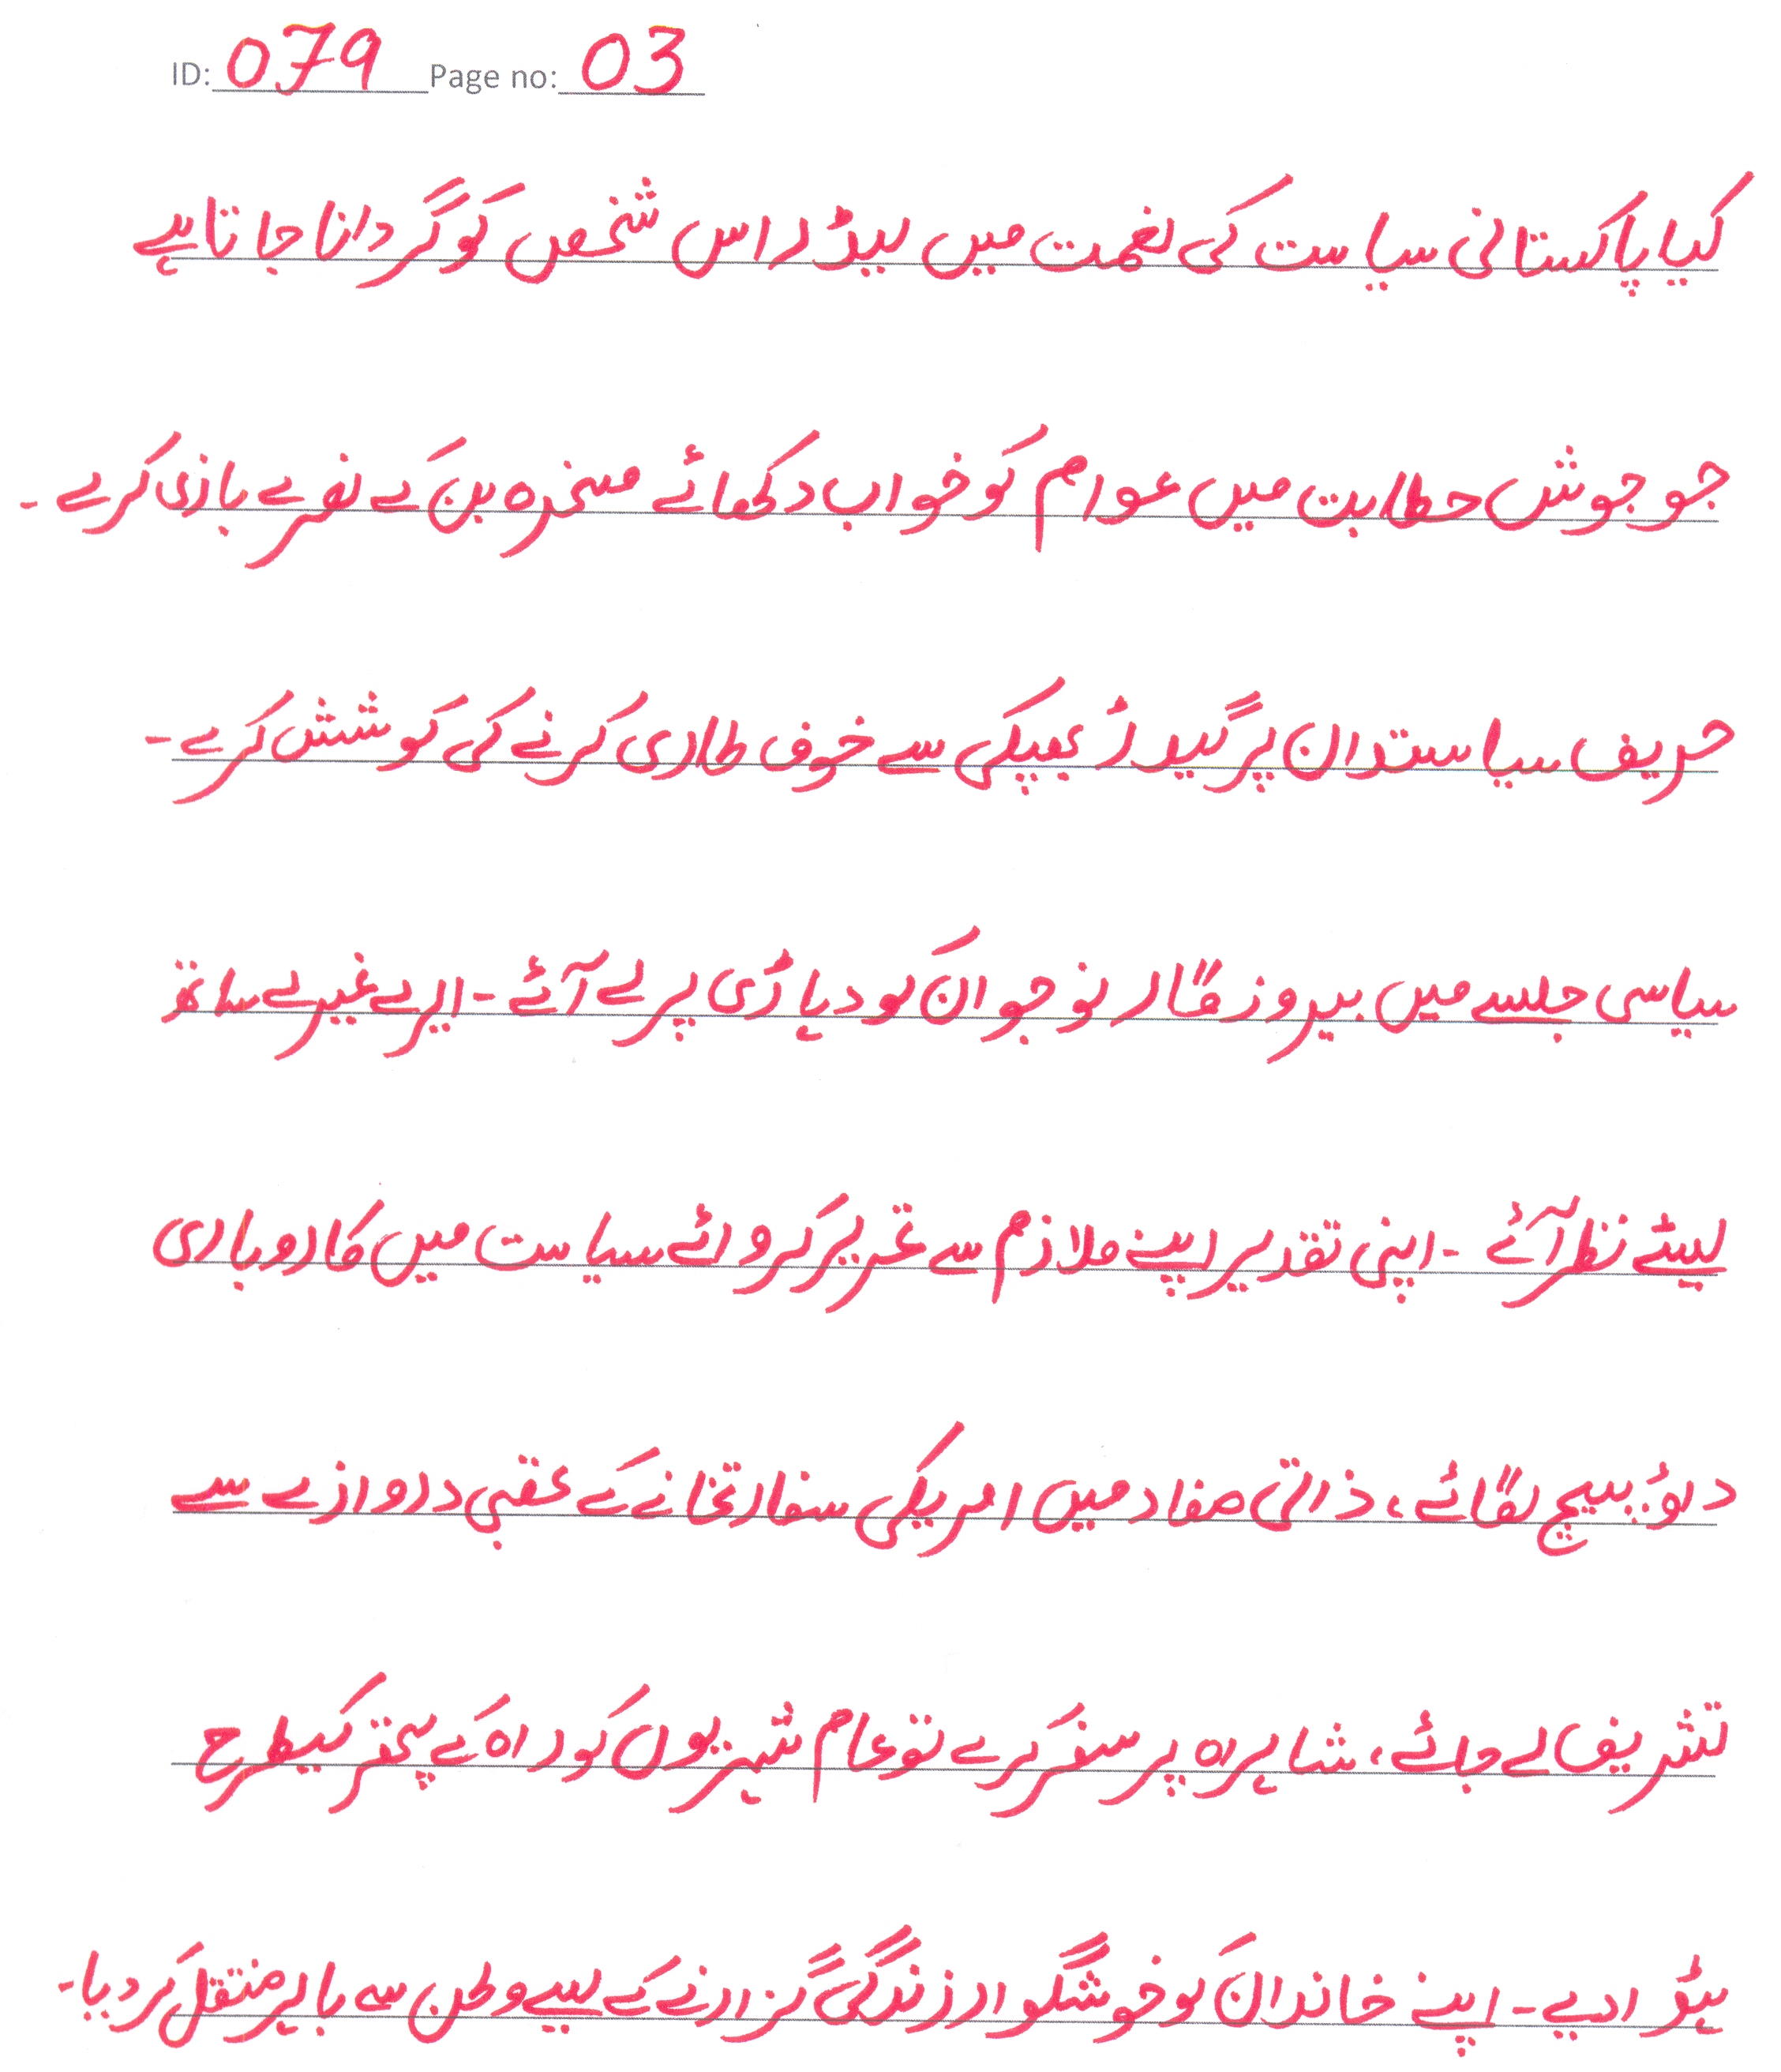 ID: 079 Page no: 03
کیا پاکستانی سیاست کی لغمت میں لیڈر اس شخص کو گردانا جاتا ہے
جو جوش خطابت میں عوام کو خواب دکھائے مسخرہ بن کے نعرے بازی کرے -
حریف سیاستدان پر گیدڑ بھپکی سے خوف طاری کرنے کی کوشش کرے -
سیاسی جلسے میں بیروزگار نوجوان کو دہاڑی پر لے آئے - ایرے غیرے ساتھ
لیئے نظر آئے - اپنی تقدیر اپنے ملازم سے تحریر کروائے سیاست میں کاروباری
داؤ پیچ لگائے، ذاتی مفاد میں امریکی سفارتخانے کے عقبی دروازے سے
تشریف لے جائے، شاہراہ پر سفر کرے تو عام شہریوں کو راہ کے پتھر کیطرح
ہٹوا دیے - اپنے خاندان کو خوشگوار زندگی گزارنے کے لیے وطن سے باہر منتقل کر دیا -